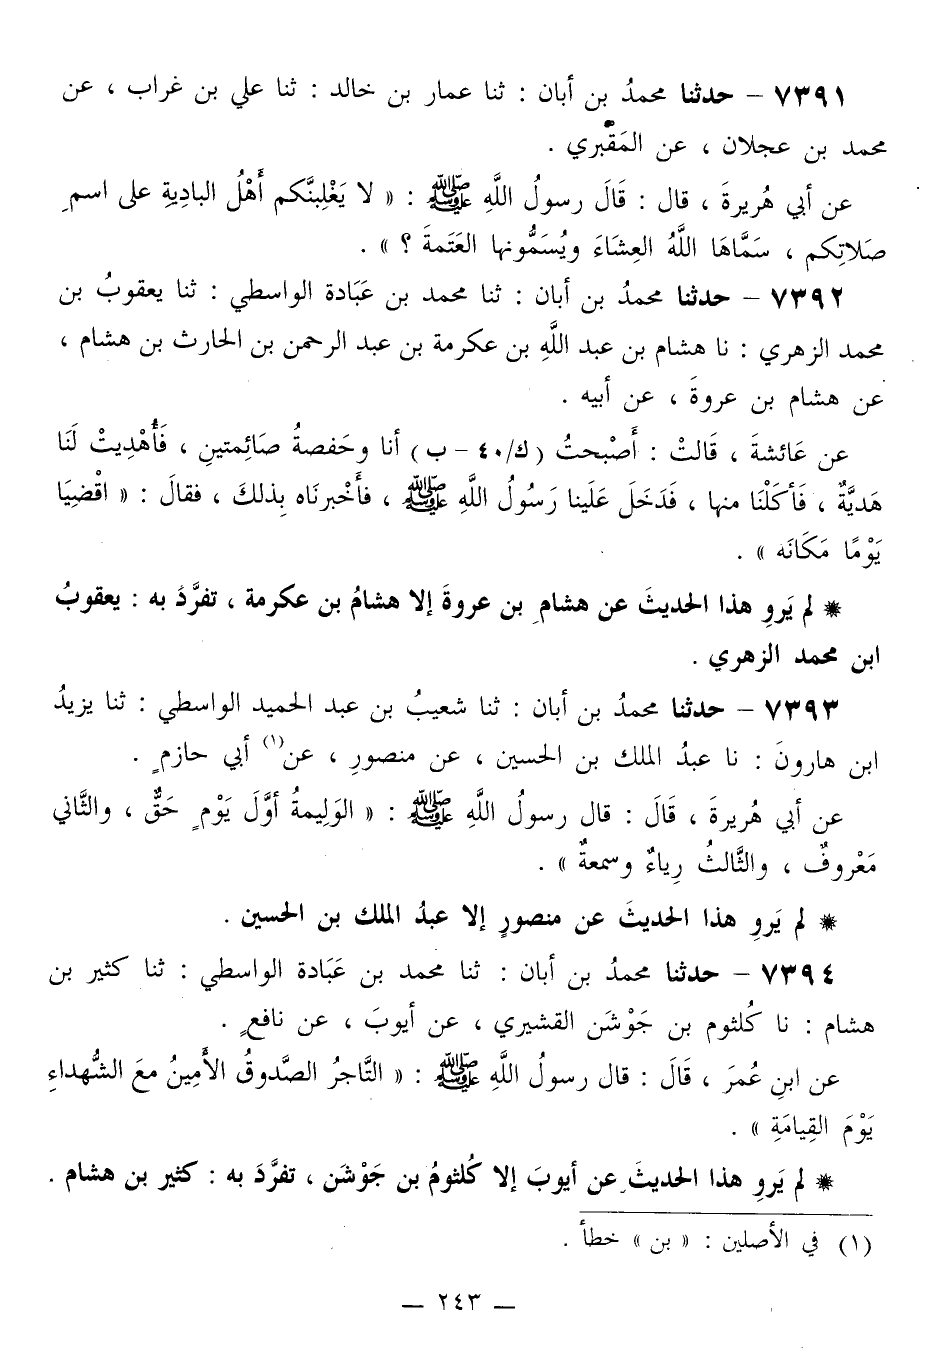 ٧٣٩١ - حدثنا محمدُ بن أبان : ثنا عمار بن خالد : ثنا علي بن غراب ، عن
محمد بن عجلان ، عن المَقْبري .
عن أبي هُريرةَ ، قال : قَالَ رسولُ اللَّهِ ﷺ : « لا يَغْلِبنَّكم أَهْلُ البادِيةِ على اسمِ
صَلاتِكم ، سَمَّاهَا اللَّهُ العِشَاءَ ويُسَمُّونها العَتَمةَ ؟ » .
٧٣٩٢ - حدثنا محمدُ بن أبان : ثنا محمد بن عَبَادة الواسطي : ثنا يعقوبُ بن
محمد الزهري : نا هشام بن عبد اللَّهِ بن عكرمة بن عبد الرحمن بن الحارث بن هشام ،
عن هشام بن عروةَ ، عن أبيه .
عن عَائشةَ ، قَالتْ : أَصْبحتُ (ك/٤٠ - ب) أنا وحَفصةُ صَائِمتينِ ، فَأُهْدِيتْ لَنَا
هَديَّةٌ ، فَأكَلْنَا منها ، فَدَخَلَ عَلَينا رَسُولُ اللَّهِ ﷺ ، فأَخْبرنَاه بِذلكَ ، فقالَ : « اقْضِيَا
يَوْمًا مَكَانَه » .
* لم يَروِ هذا الحديثَ عن هشامِ بن عروةَ إلا هشامُ بن عكرمة ، تفرَّدَ به : يعقوبُ
ابن محمد الزهري .
٧٣٩٣ - حدثنا محمدُ بن أبان : ثنا شعيبُ بن عبد الحميد الواسطي : ثنا يزيدُ
ابن هارونَ : نا عبدُ الملك بن الحسين ، عن منصورِ ، عن(١) أبي حازمٍ .
عن أبي هُريرةَ ، قَالَ : قال رسولُ اللَّهِ ﷺ : « الوَلِيمةُ أوَّلَ يَوْمٍ حَقٌّ ، والثَّاني
مَعْروفٌ ، والثَّالثُ رِياءٌ وسمعةٌ » .
* لم يَروِ هذا الحديثَ عن منصورٍ إلا عبدُ الملك بن الحسين .
٧٣٩٤ - حدثنا محمدُ بن أبان : ثنا محمد بن عَبَادة الواسطي : ثنا كثير بن
هشام : نا كُلثوم بن جَوْشَن القشيري ، عن أيوبَ ، عن نافعٍ .
عن ابنِ عُمرَ ، قَالَ : قال رسولُ اللَّهِ ﷺ : « التَّاجرُ الصَّدوقُ الأَمِينُ معَ الشُّهداءِ
يَوْمَ القِيامَةِ » .
* لم يَروِ هذا الحديثَ عن أيوبَ إلا كُلثومُ بن جَوْشَن ، تفرَّدَ به : كثير بن هشام .
(١) في الأصلين : « بن » خطأ .
— ٢٤٣ —